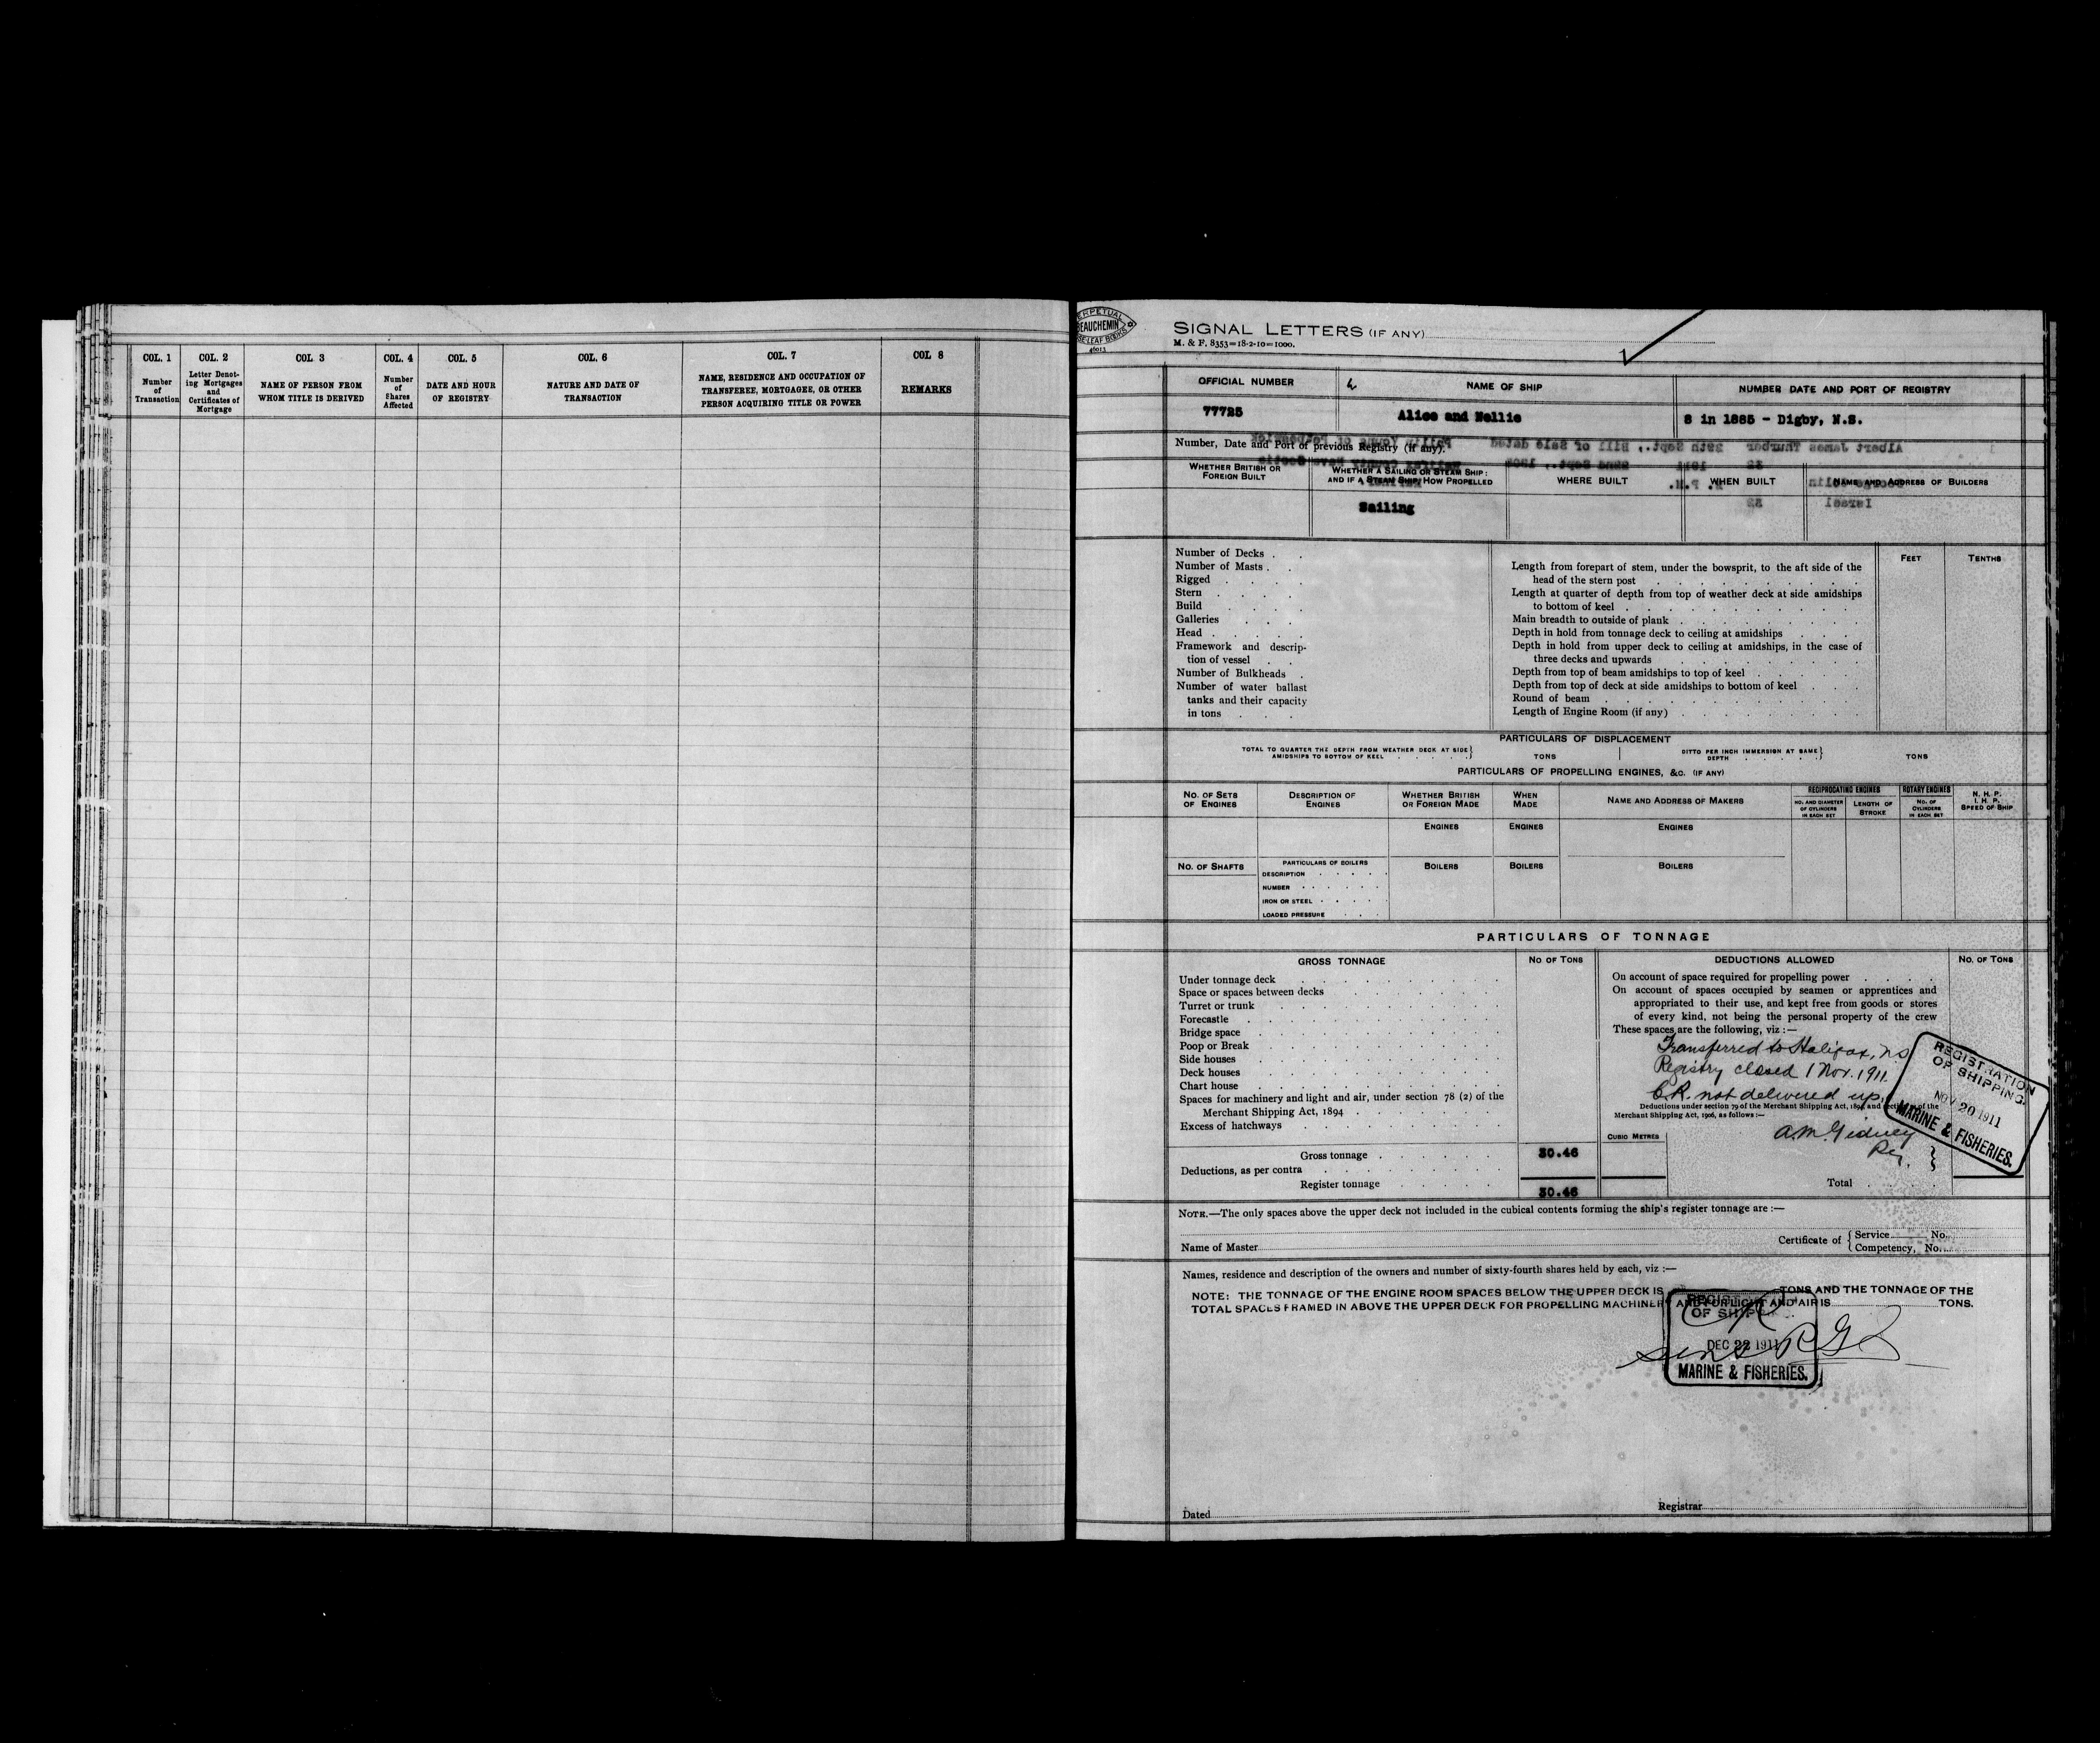 COL. 1
Number
of
Transaction
COL. 2
Letter Denot-
ing Mortgages
and
Certificates of
Mortgage
COL. 3
NAME OF PERSON FROM
WHOM TITLE IS DERIVED
COL. 4
Number
of
Shares
Affected
COL. 5
DATE AND HOUR
OF REGISTRY
COL. 6
NATURE AND DATE OF
TRANSACTION
COL. 7
NAME, RESIDENCE AND OCCUPATION OF
TRANSFEREE, MORTGAGEE, OR OTHER
PERSON ACQUIRING TITLE OR POWER
COL 8
REMARKS
PERPETUAL
BEAUCHEMIN
46013
SIGNAL LETTERS (IF ANY)
M. & F. 8353=18-2-10=1000.
OFFICIAL NUMBER
NAME OF SHIP
NUMBER DATE AND PORT OF REGISTRY
77725
Alice and Nellie
8 in 1885 - Digby, N.S.
Number, Date and Port of previous Registry (if any).
WHETHER BRITISH OR
FOREIGN BUILT
WHETHER A SAILING OR STEAM SHIP:
AND IF A STEAM SHIP, HOW PROPELLED
WHERE BUILT
WHEN BUILT
NAME AND ADDRESS OF BUILDERS
Sailing
Number of Decks
Number of Masts
Rigged
Stern
Build
Galleries
Head
Framework and descrip-
tion of vessel
Number of Bulkheads
Number of water ballast
tanks and their capacity
in tons
FEET
TENTHS
Length from forepart of stem, under the bowsprit, to the aft side of the
head of the stern post
Length at quarter of depth from top of weather deck at side amidships
to bottom of keel
Main breadth to outside of plank
Depth in hold from tonnage deck to ceiling at amidships
Depth in hold from upper deck to ceiling at amidships, in the case of
three decks and upwards
Depth from top of beam amidships to top of keel
Depth from top of deck at side amidships to bottom of keel
Round of beam
Length of Engine Room (if any)
PARTICULARS OF DISPLACEMENT
TOTAL TO QUARTER THE DEPTH FROM WEATHER DECK AT SIDE
AMIDSHIPS TO BOTTOM OF KEEL
TONS
DITTO PER INCH IMMERSION AT SAME
DEPTH
TONS
PARTICULARS OF PROPELLING ENGINES, &C. (IF ANY)
NO. OF SETS
OF ENGINES
DESCRIPTION OF
ENGINES
WHETHER BRITISH
OR FOREIGN MADE
WHEN
MADE
NAME AND ADDRESS OF MAKERS
RECIPROCATING ENGINES
NO. AND DIAMETER
OF CYLINDERS
IN EACH SET
LENGTH OF
STROKE
ROTARY ENGINES
NO. OF
CYLINDERS
IN EACH SET
N. H. P.
I. H. P.
SPEED OF SHIP
ENGINES
ENGINES
ENGINES
NO. OF SHAFTS
PARTICULARS OF BOILERS
BOILERS
BOILERS
BOILERS
DESCRIPTION
NUMBER
IRON OR STEEL
LOADED PRESSURE
PARTICULARS OF TONNAGE
GROSS TONNAGE
NO OF TONS
DEDUCTIONS ALLOWED
NO. OF TONS
Under tonnage deck
Space or spaces between decks
Turret or trunk
Forecastle
Bridge space
Poop or Break
Side houses
Deck houses
Chart house
Spaces for machinery and light and air, under section 78 (2) of the
Merchant Shipping Act, 1894
Excess of hatchways
Gross tonnage
30.46
Deductions, as per contra
Register tonnage
30.46
On account of space required for propelling power
On account of spaces occupied by seamen or apprentices and
appropriated to their use, and kept free from goods or stores
of every kind, not being the personal property of the crew
These spaces are the following, viz :—
Transferred to Halifax, NS
Registry closed 1 Nov. 1911.
C.R. not delivered up.
Deductions under section 79 of the Merchant Shipping Act, 1894, and section of the
Merchant Shipping Act, 1906, as follows :—
CUBIC METRES
A.M. Gidney
Reg.
Total
REGISTRATION
OF SHIPPING.
NOV 20 1911
MARINE & FISHERIES.
NOTE.—The only spaces above the upper deck not included in the cubical contents forming the ship's register tonnage are :—
Name of Master
Certificate of
Service No.
Competency, No.
Names, residence and description of the owners and number of sixty-fourth shares held by each, viz :—
NOTE: THE TONNAGE OF THE ENGINE ROOM SPACES BELOW THE UPPER DECK IS TONS AND THE TONNAGE OF THE
TOTAL SPACES FRAMED IN ABOVE THE UPPER DECK FOR PROPELLING MACHINERY AND FOR LIGHT AND AIR IS TONS.
OF SHIP
DEC 22 1911
MARINE & FISHERIES.
Dated
Registrar